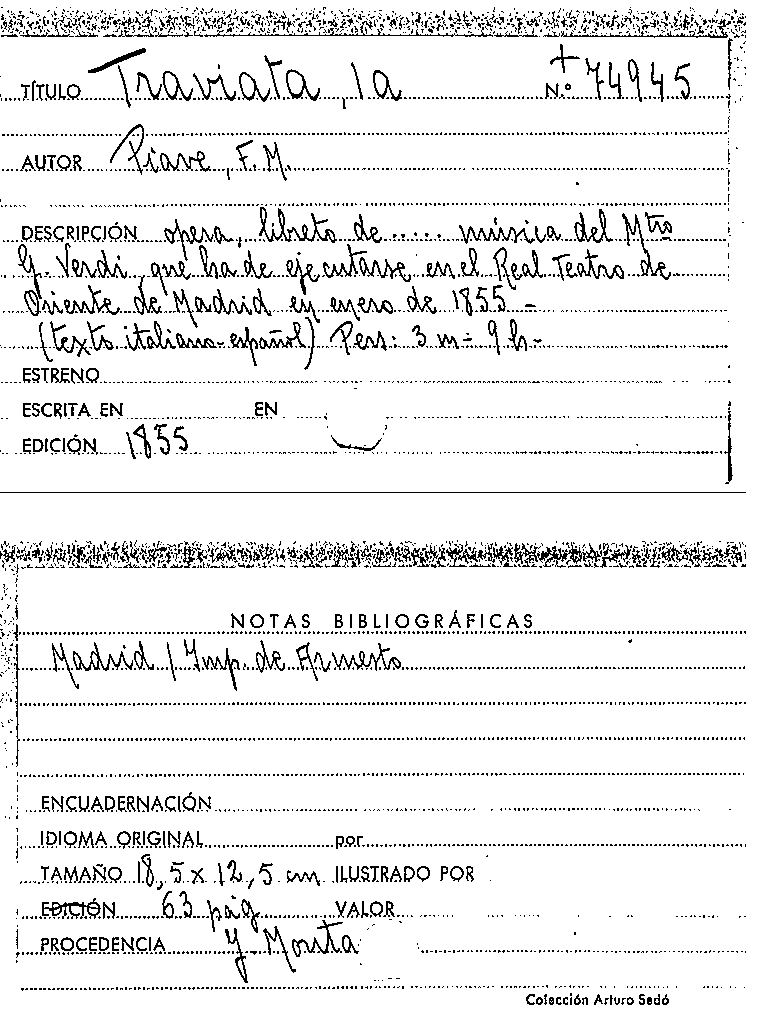 TÍTULO Traviata, la + N.º 74945
AUTOR Piave, F.M.
DESCRIPCIÓN opera, libreto de ..... música del Mtro
G. Verdi, que ha de ejecutarse en el Real Teatro de
Oriente de Madrid en enero de 1855 -
(texto italiano-español) Pers: 3 m - 9 h -
ESTRENO
ESCRITA EN EN
EDICIÓN 1855
NOTAS BIBLIOGRÁFICAS
Madrid / Imp. de Armesto
ENCUADERNACIÓN
IDIOMA ORIGINAL por
TAMAÑO 18,5 x 12,5 cm ILUSTRADO POR
EDICIÓN 63 pág VALOR
PROCEDENCIA
Colección Arturo Sedó